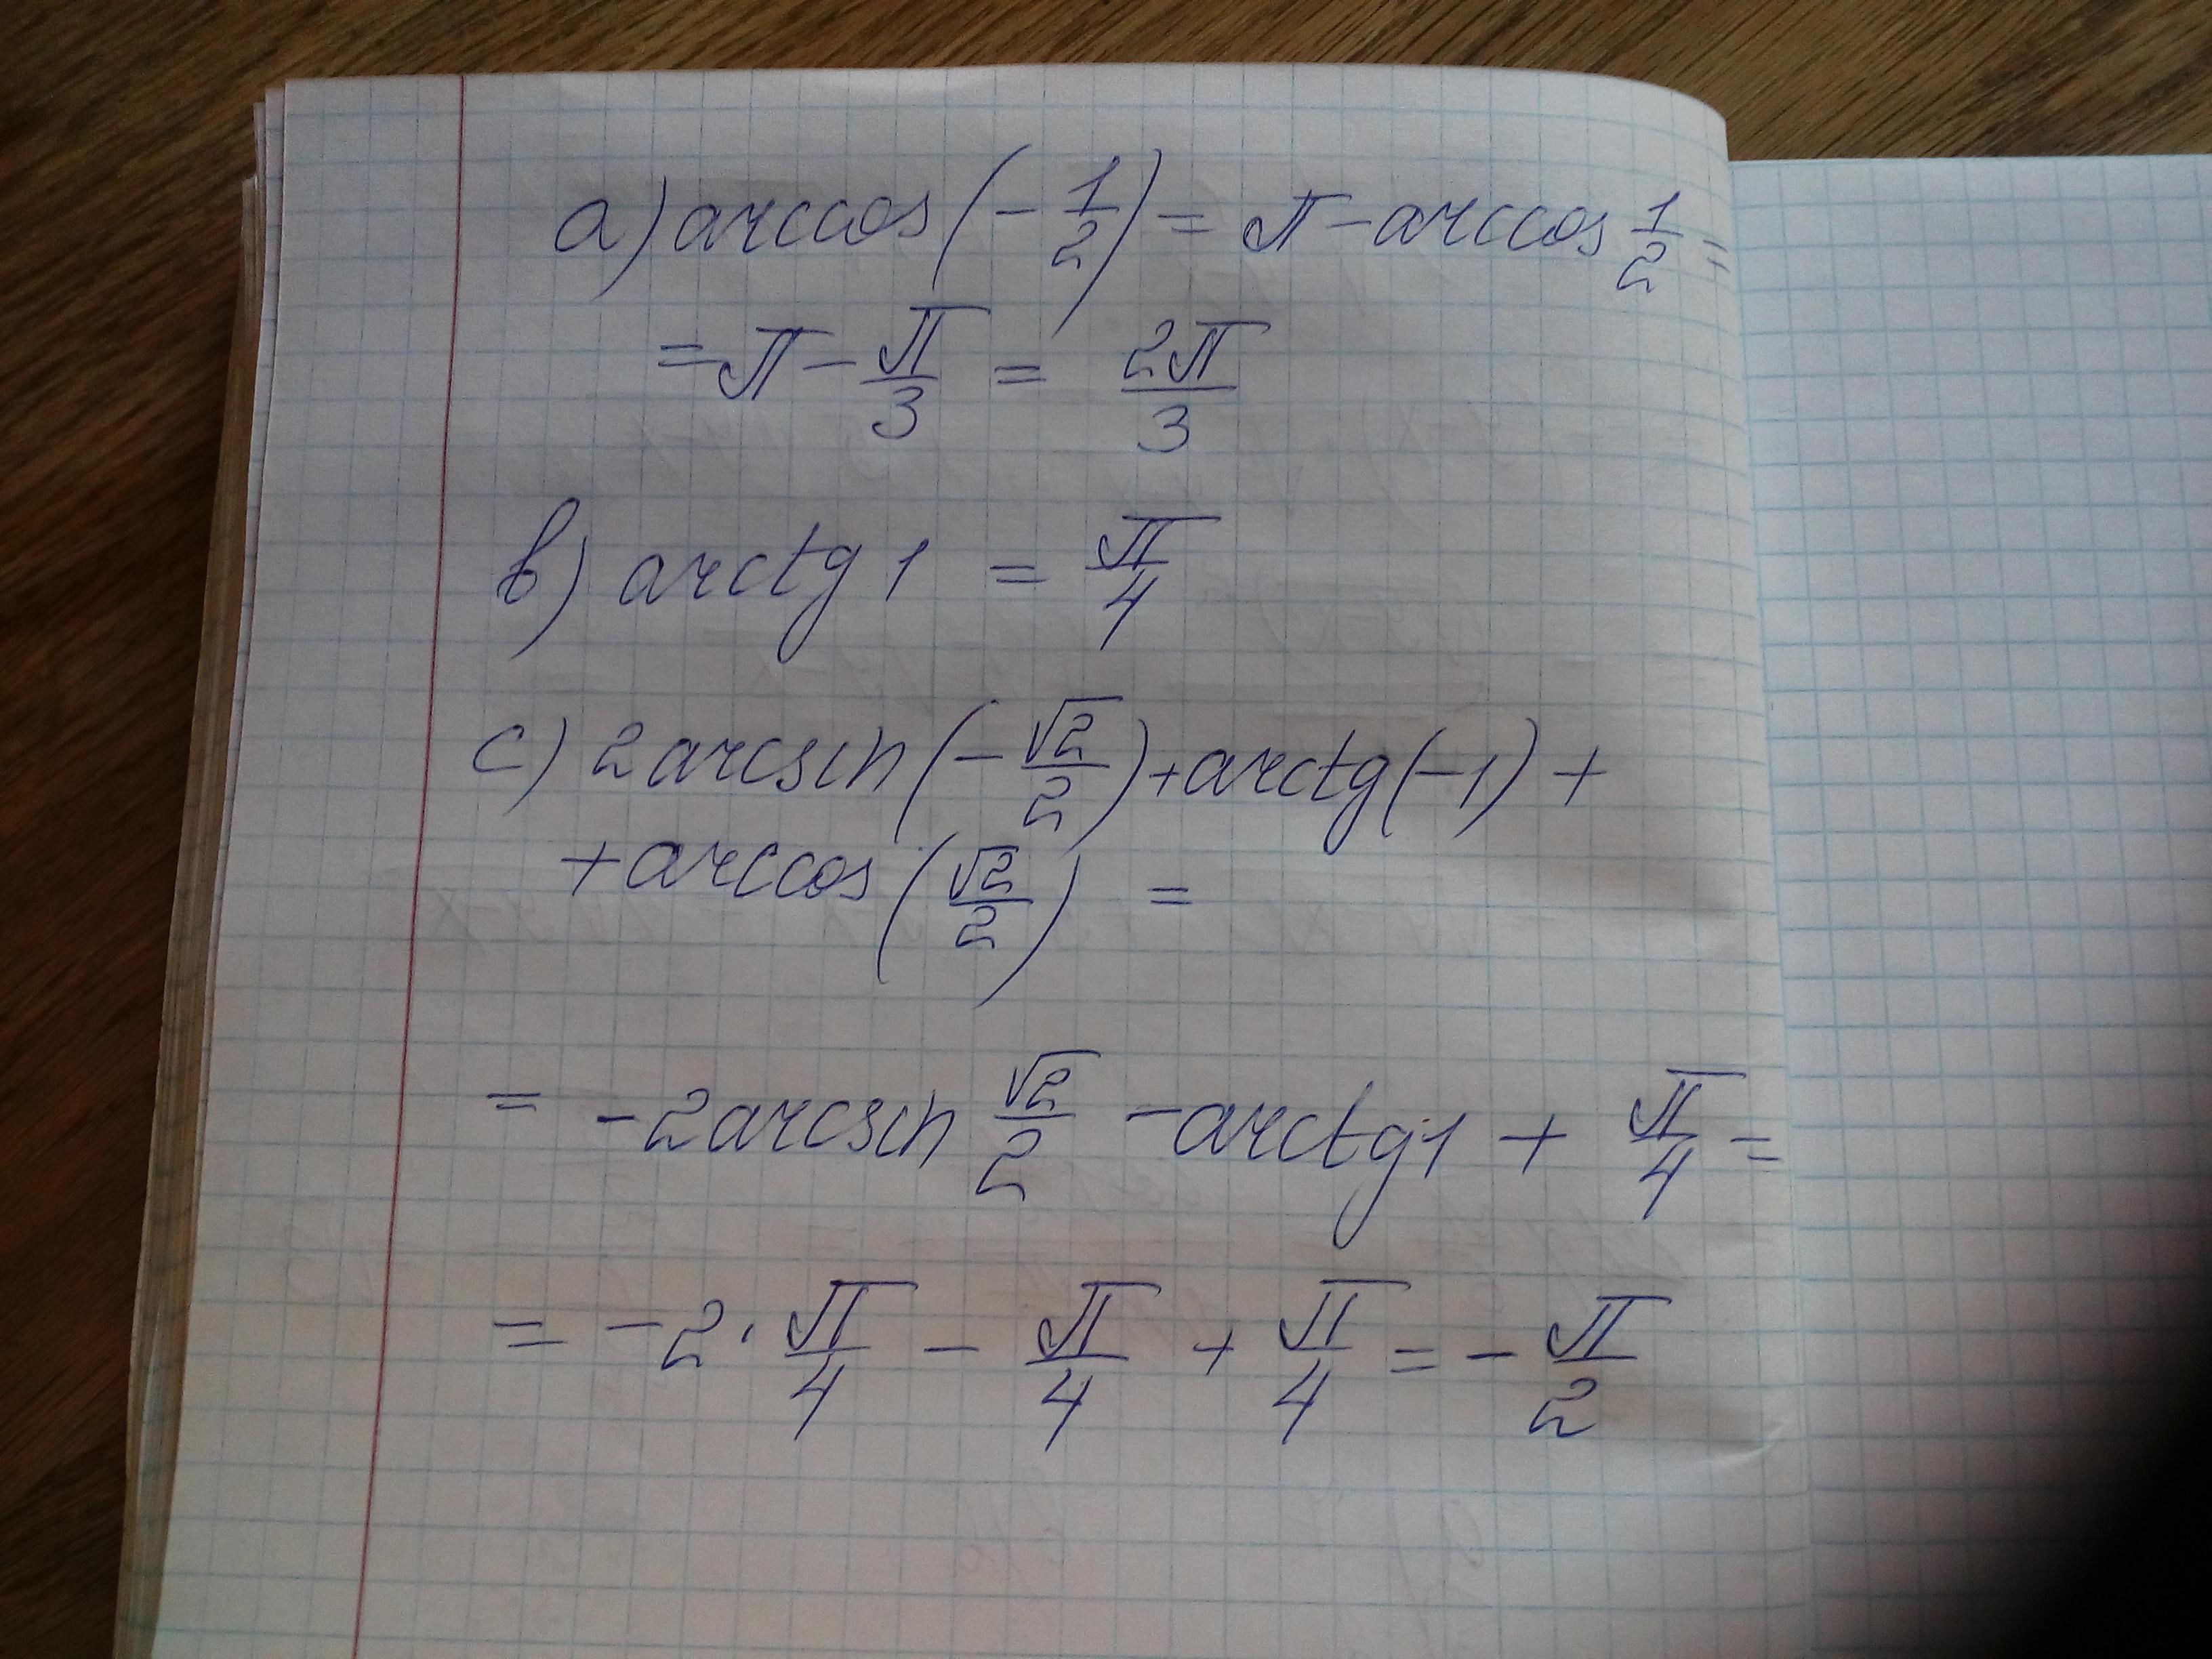 a) arccos(-1/2) = π - arccos 1/2 =
= π - π/3 = 2π/3
b) arctg 1 = π/4
c) 2arcsin(-√2/2) + arctg(-1) +
+ arccos(√2/2) =
= -2arcsin √2/2 - arctg1 + π/4 =
= -2 · π/4 - π/4 + π/4 = - π/2